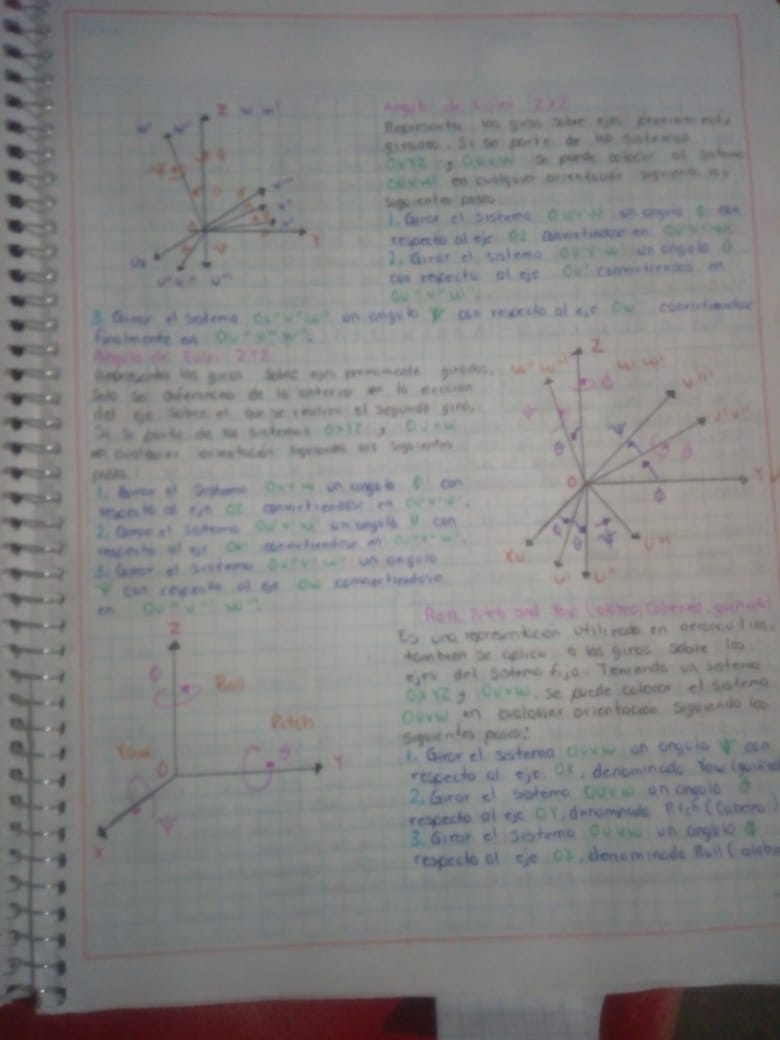 Z W W'
Y
Angulo de Euler ZXZ
Representa los giros sobre ejes previamente
girados. Si se parte de los sistemas
OXYZ y OUVW se puede colocar al sistema
OUVW en cualquier orientación siguiendo los
siguientes pasos
1. Girar el sistema OUVW un angulo Φ con
respecto al eje OZ convirtiendose en OU'V'W'.
2. Girar el sistema OU'V'W' un angulo θ
con respecto al eje OU' convirtiendos en
OU''V''W''.
3. Girar el sistema OU''V''W'' un angulo Ψ con respecto al eje OW'' convirtiendose
finalmente en OU'''V'''W'''.
Angulo de Euler ZYZ
Representa los giros sobre ejes previamente girados.
Solo se diferencia de la anterior en la elección
del eje sobre el que se realiza el segundo giro.
Si se parte de los sistemas OXYZ y OUVW
en cualquier orientación siguiendo los siguientes
pasos
1. Girar el sistema OUVW un angulo Φ con
respecto al eje OZ convirtiendose en OU'V'W'.
2. Girar el sistema OU'V'W' un angulo θ con
respecto al eje OV' convirtiendose en OU''V''W''.
3. Girar el sistema OU''V''W'' un angulo
Ψ con respecto al eje OW convirtiendose
en OU'''V'''W'''
Z
W'' W'''
W W'
V'''
V'V''
Φ
Ψ
θ
O
Y
XU
U'
U''
U'''
Roll, Pitch and Yaw (alabeo, Cabeceo, guiñada)
Es una representación utilizada en aeronautica,
tambien se aplica a los giros sobre los
ejes del sistema fijo. Teniendo un sistema
OXYZ y OUVW, se puede colocar el sistema
OUVW en cualquier orientación siguiendo los
siguientes pasos:
1. Girar el sistema OUVW un angulo Ψ con
respecto al eje OX, denominado Yaw
2. Girar el sistema OUVW un angulo θ
respecto al eje OY, denominado Pitch
3. Girar el sistema OUVW un angulo Φ
respecto al eje OZ, denominado Roll
Z
Φ
Roll
Pitch
Yaw
O
θ
Y
Ψ
X